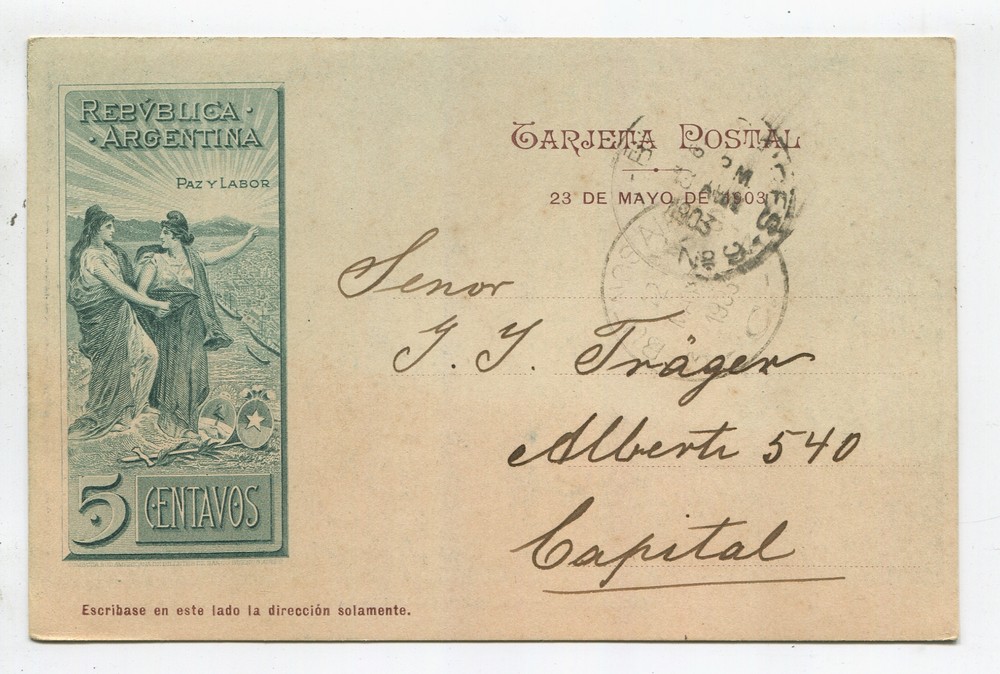 REPVBLICA ·
· ARGENTINA
PAZ Y LABOR
5 CENTAVOS
TARJETA POSTAL
23 DE MAYO DE 1903
Senor
J. J. Träger
Alberti 540
Capital
Escribase en este lado la dirección solamente.
PM
1903
Nº 9
1903